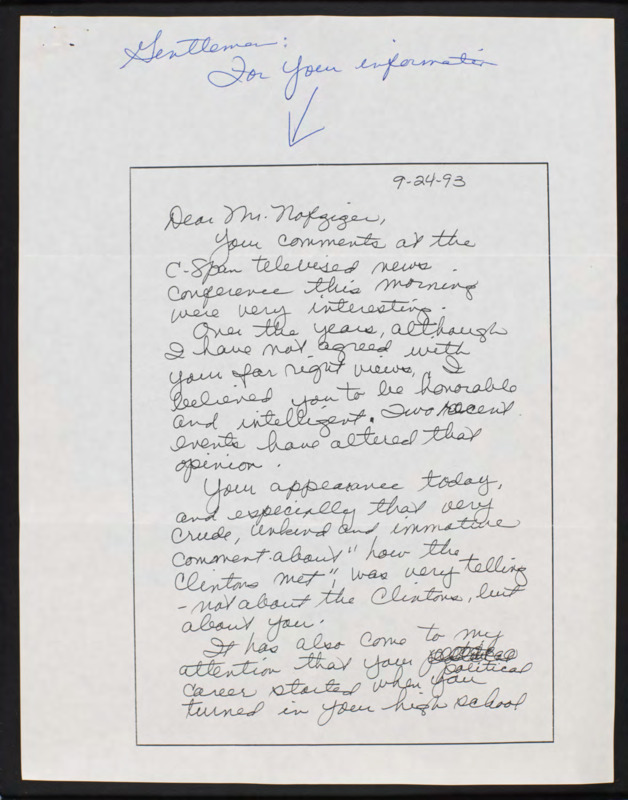 Gentlemen:
For your information
9-24-93
Dear Mr. Nofziger,
Your comments at the
C-Span televised news
conference this morning
were very interesting.
Over the years, although
I have not agreed with
your far right views, I
believed you to be honorable
and intelligent. Two recent
events have altered that
opinion.
Your appearance today,
and especially that very
crude, unkind and immature
comment about "how the
Clintons met", was very telling
- not about the Clintons, but
about you.
It has also come to my
attention that your political
career started when you
turned in your high school